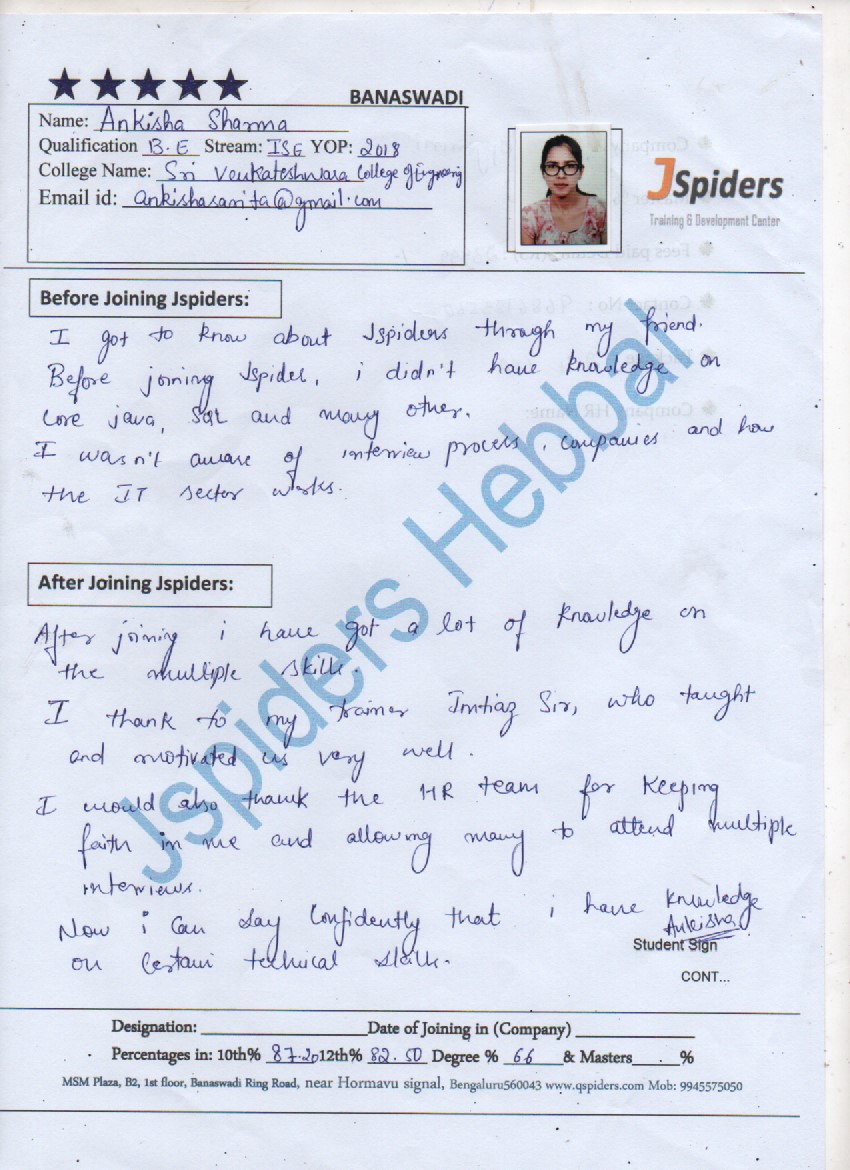 BANASWADI
Name: Ankisha Sharma
Qualification B.E Stream: ISE YOP: 2018
College Name: Sri Venkateshwara College of Engineering
Email id: ankishasanita@gmail.com
JSpiders
Training & Development Center
Before Joining Jspiders:
I got to know about Jspiders through my friend.
Before joining Jspider, i didn't have knowledge on
core java, SQL and many other.
I wasn't aware of interview process, companies and how
the IT sector works.
After Joining Jspiders:
After joining i have got a lot of knowledge on
the multiple skills.
I thank to my trainer Imtiaz Sir, who taught
and motivated us very well.
I would also thank the HR team for keeping
faith in me and allowing many to attend multiple
interviews.
Now i can say confidently that i have knowledge
on certain technical skills.
Ankisha
Student Sign
CONT...
Jspiders Hebbal
Designation: Date of Joining in (Company)
Percentages in: 10th% 87.20 12th% 82.50 Degree % 66 & Masters . %
MSM Plaza, B2, 1st floor, Banaswadi Ring Road, near Hormavu signal, Bengaluru560043 www.qspiders.com Mob: 9945575050